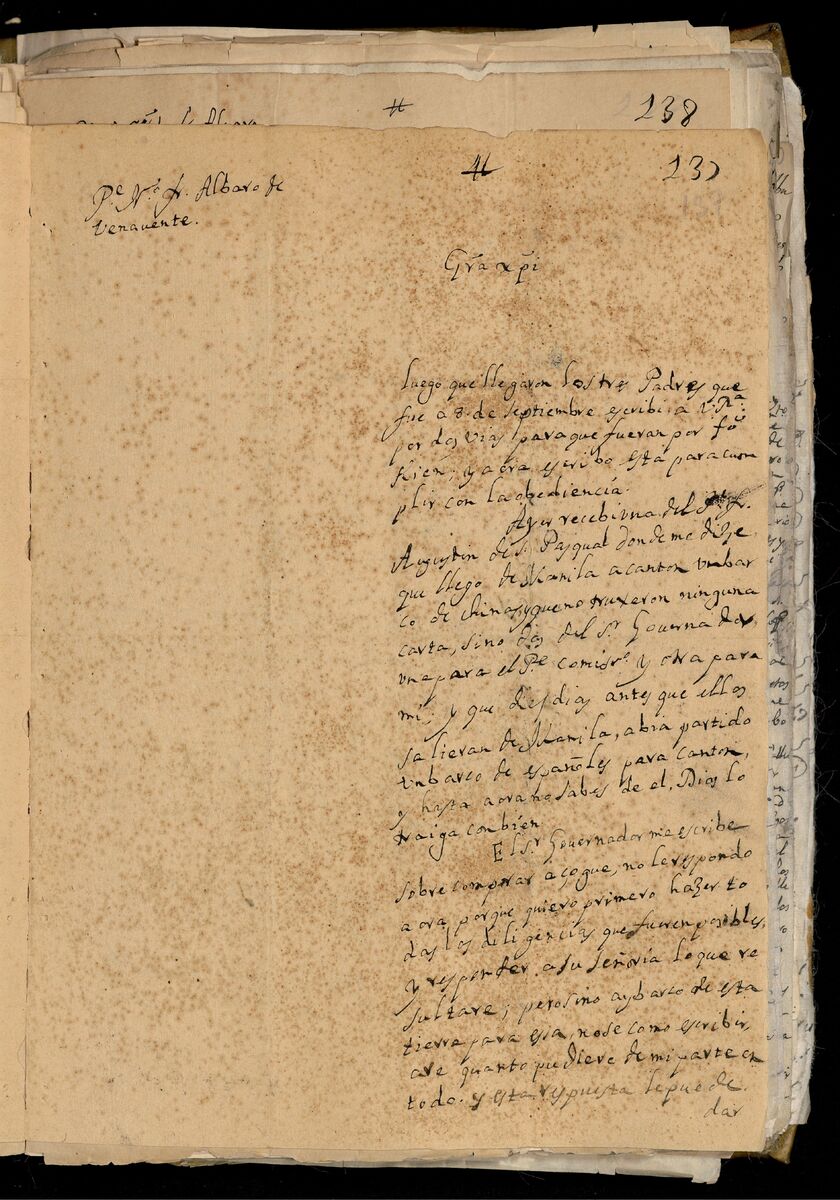 # 238
# 237
Pe. No. fr. Albaro de
Venauente.
Gra xpi
luego que llegaron los tres Padres que
fue a 8. de septiembre escribi a V Ra.
por dos vias para que fueran por fo
Kien; y aora escribo esta para cum
plir con la obediencia.
Ayer recebi vna del Pe. fr.
Augustin de S. Pasqual donde me dize
que llego de Manila a canton vn bar
co de chinas, y que no truxeron ninguna
carta, sino dos del Sr. Gouernador
vna para el Pe. Comisro. y otra para
mi; y que dies dias antes que ellos
salieran de Manila, abia partido
vn barco de españoles para canton,
y hasta aora no sabes de el, Dios lo
traiga con bien
El Sr. Gouernador me escribe
sobre comprar açogue, no le respondo
aora, porque quiero primero hazer to
das los diligencias que fueren posibles,
y responder a su señoria lo que re
sultare; pero sino ay barco de esta
tierra para esa, no se como escribir,
are quanto pudiere de mi parte en
todo. y esta respuesta le puede
dar